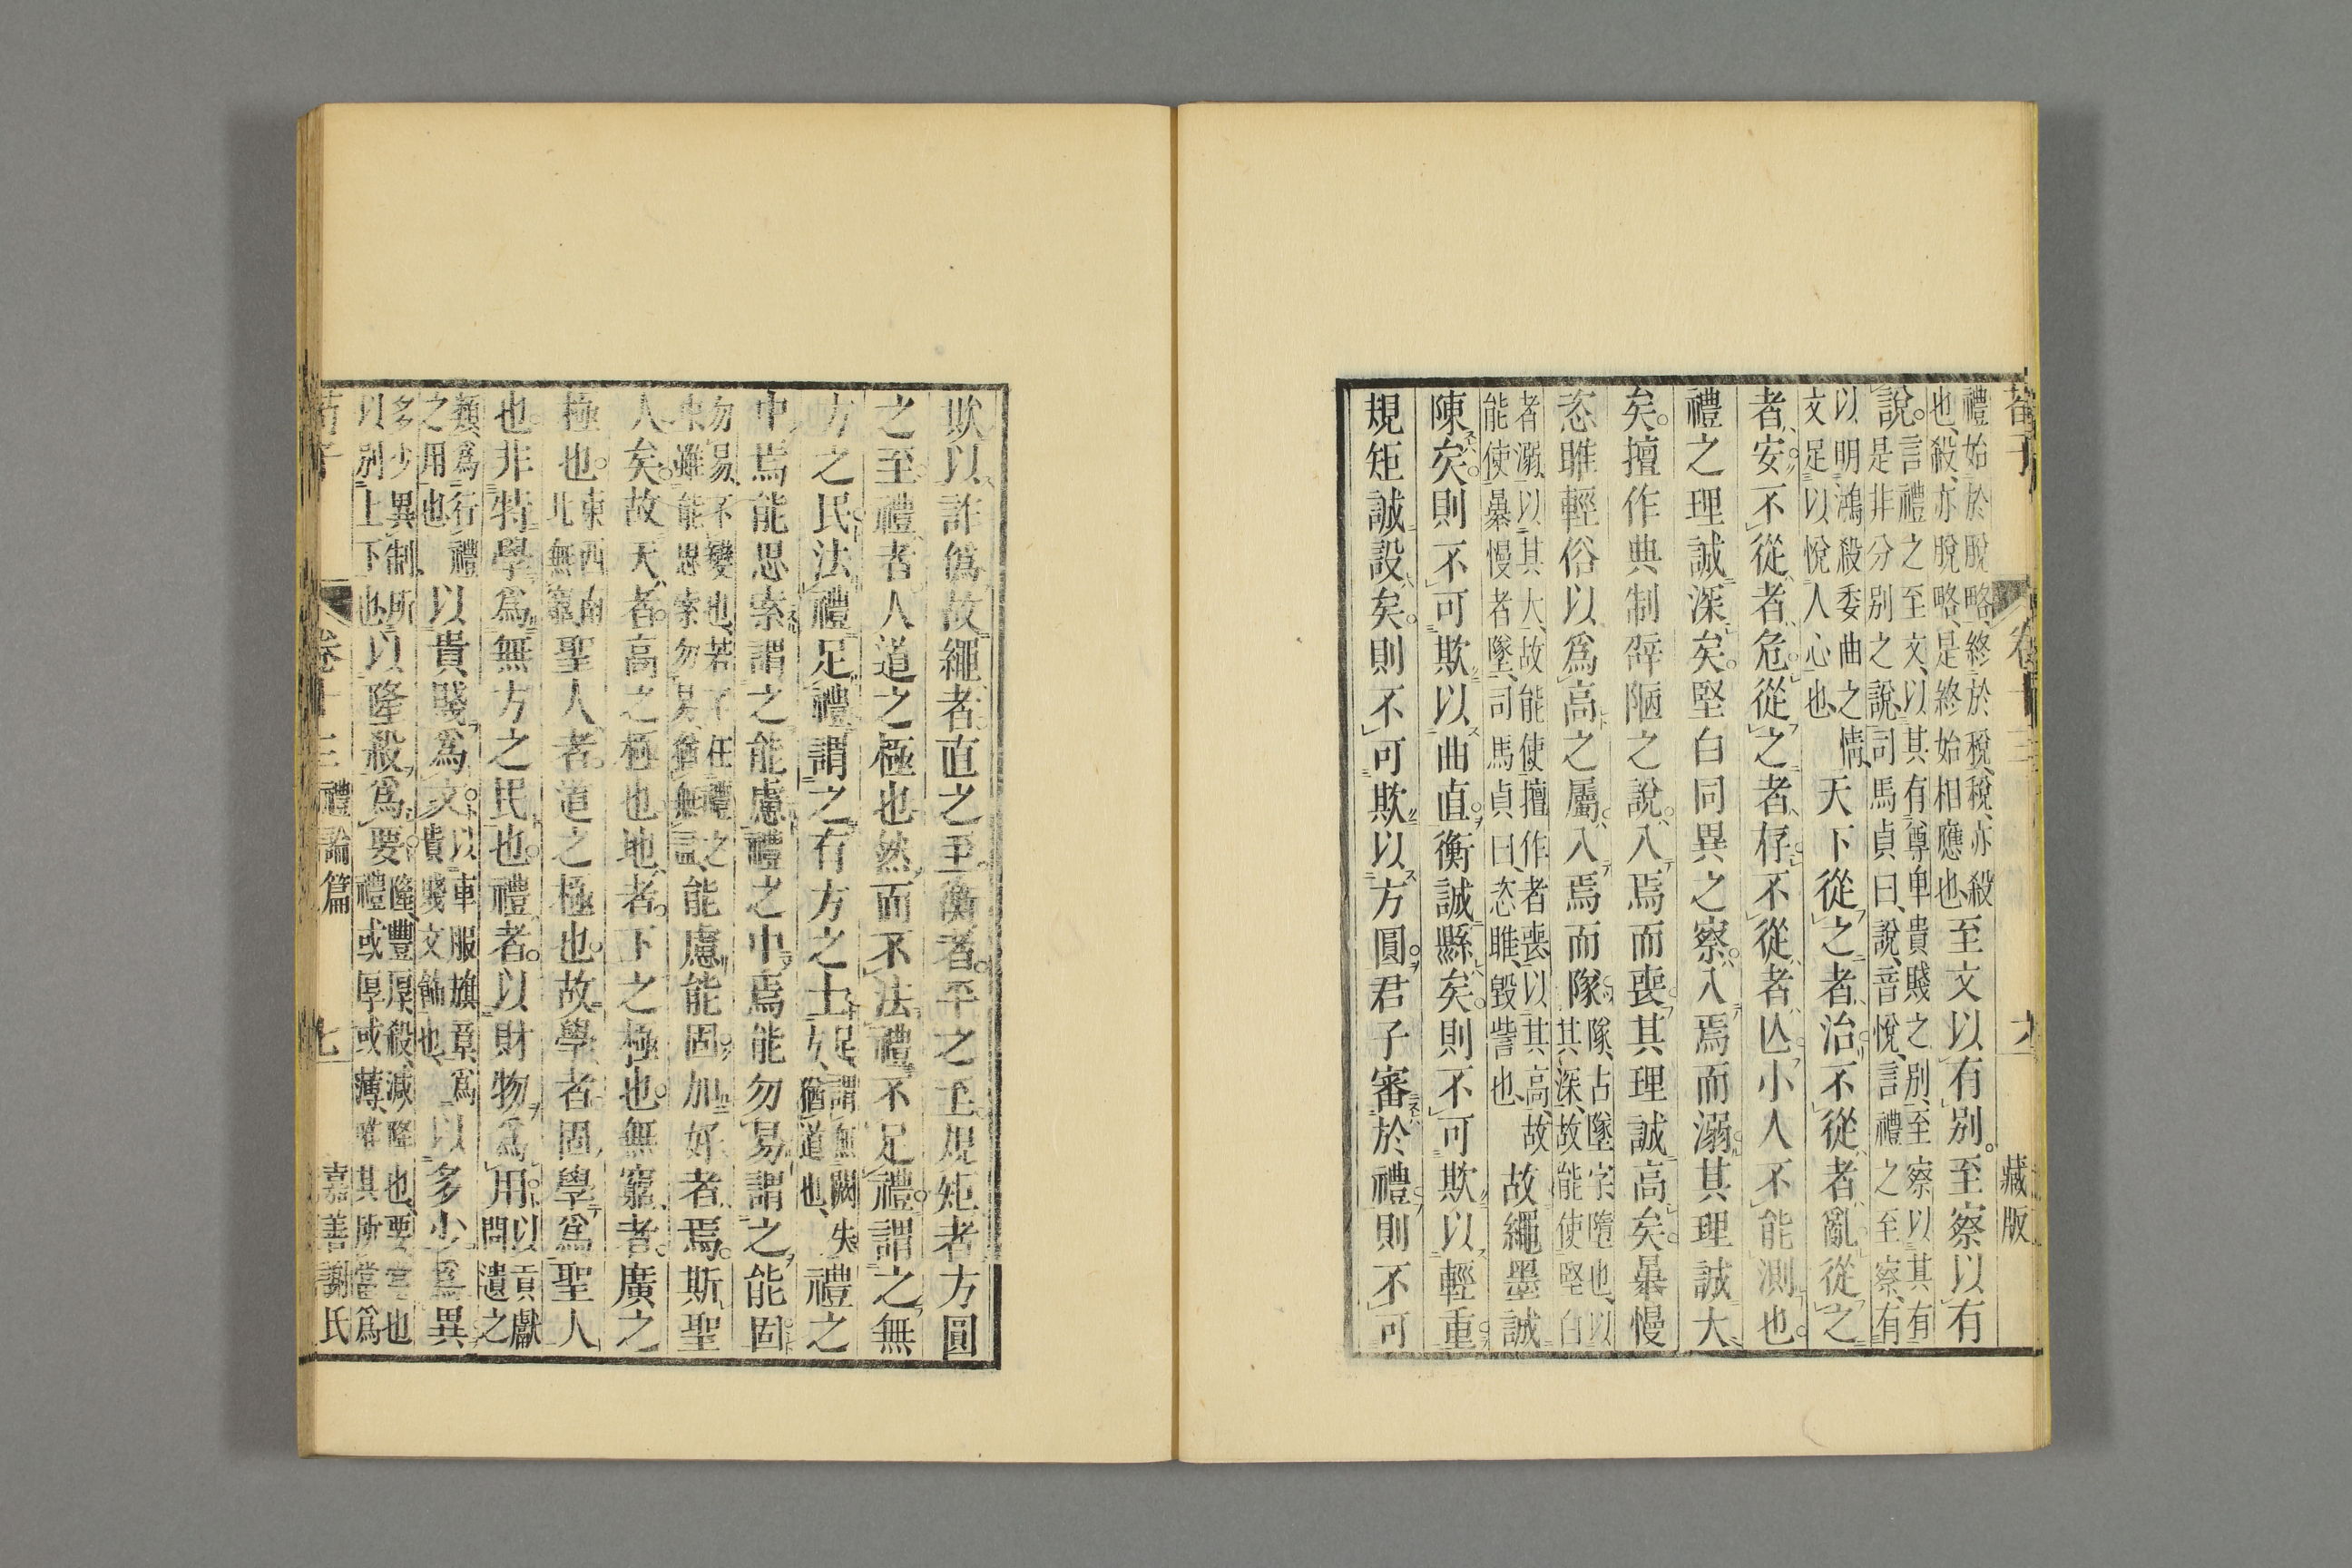 荀子　卷十三　藏版
禮始於脫略終於稅稅亦殺
也殺亦脫略是終始相應也
至文以有別。至察以有
說。
言禮之至文以其有尊卑貴賤之別至察以其有
是非分別之說司馬貞曰說音悅言禮之至察有
以明鴻殺委曲之情
文足以悅人心也
天下從之者治不從者亂從之
者安不從者危從之者存不從者亾小人不能測也。
禮之理誠深矣。堅白同異之察入焉而溺其理誠大
矣。擅作典制辟陋之說入焉而喪其理誠高矣。暴慢
恣睢輕俗以爲高之屬入焉而隊
隊古墜字墮也以
其深故能使堅白
者溺以其大故能使擅作者喪以其高故
能使暴慢者墜司馬貞曰恣睢毀訾也
故繩墨誠
陳矣。則不可欺以曲直。衡誠縣矣。則不可欺以輕重。
規矩誠設矣。則不可欺以方圓。君子審於禮則不可
欺以詐僞故繩者直之至衡者。平之至規矩者方圓
之至。禮者人道之極也然而不法禮不足禮。謂之無
方之民。法禮足禮謂之有方之士
足謂無闕失
方猶道也
禮之
中焉能思索謂之能慮禮之中焉能勿易謂之能固
勿易不變也若不在禮之
中雖能思索勿易猶無益
能慮能固加好者焉。斯聖
人矣。故天者。高之極也地者。下之極也。無窮者。廣之
極也。
東西南
北無窮
聖人者。道之極也。故學者固學爲聖人
也。非特學爲無方之民也。禮者。以財物爲用。
以貢獻
問遺之
類爲行禮
之用也
以貴賤爲文。
以車服旗章爲
貴賤文飾也
以多少爲異
多少異制所
以別上下也
以隆殺爲要。
隆豐厚殺減降也要當也
禮或厚或薄唯其所當爲
荀子　卷十三　禮論篇　七　嘉善謝氏